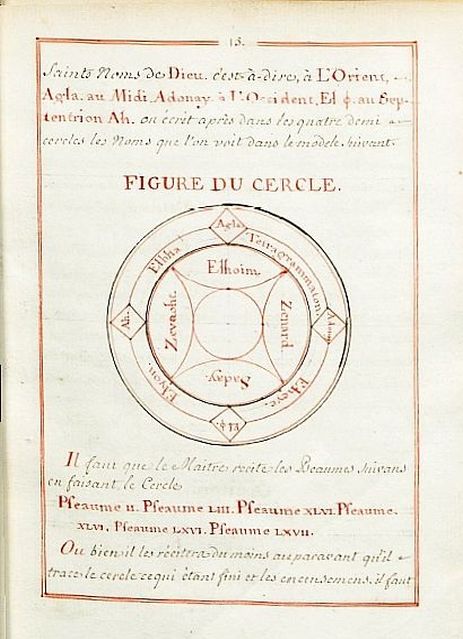 15.
Saints Noms de Dieu. c'est-à-dire, à L'Orient,
Agla. au Midi Adonay. à L'Occident, El ϕ. au Sep-
tentrion Ah. on écrit après dans les quatre demi
cercles les Noms que l'on voit dans le modele suivant.
FIGURE DU CERCLE.
Agla
Tetragrammaton.
Eheye.
El ϕ.
Elyon.
Ah.
Elhoim.
Zenard
Saday.
Zevasht.
Il faut que le Maître récite les Pseaumes suivans
en faisant le Cercle
Pseaume II. Pseaume LIII. Pseaume XLVI. Pseaume.
XLVI. Pseaume LXVI. Pseaume LXVII.
Ou bien il les récitera du moins auparavant qu'il
trace le cercle ce qui étant fini et les encensemens. il faut